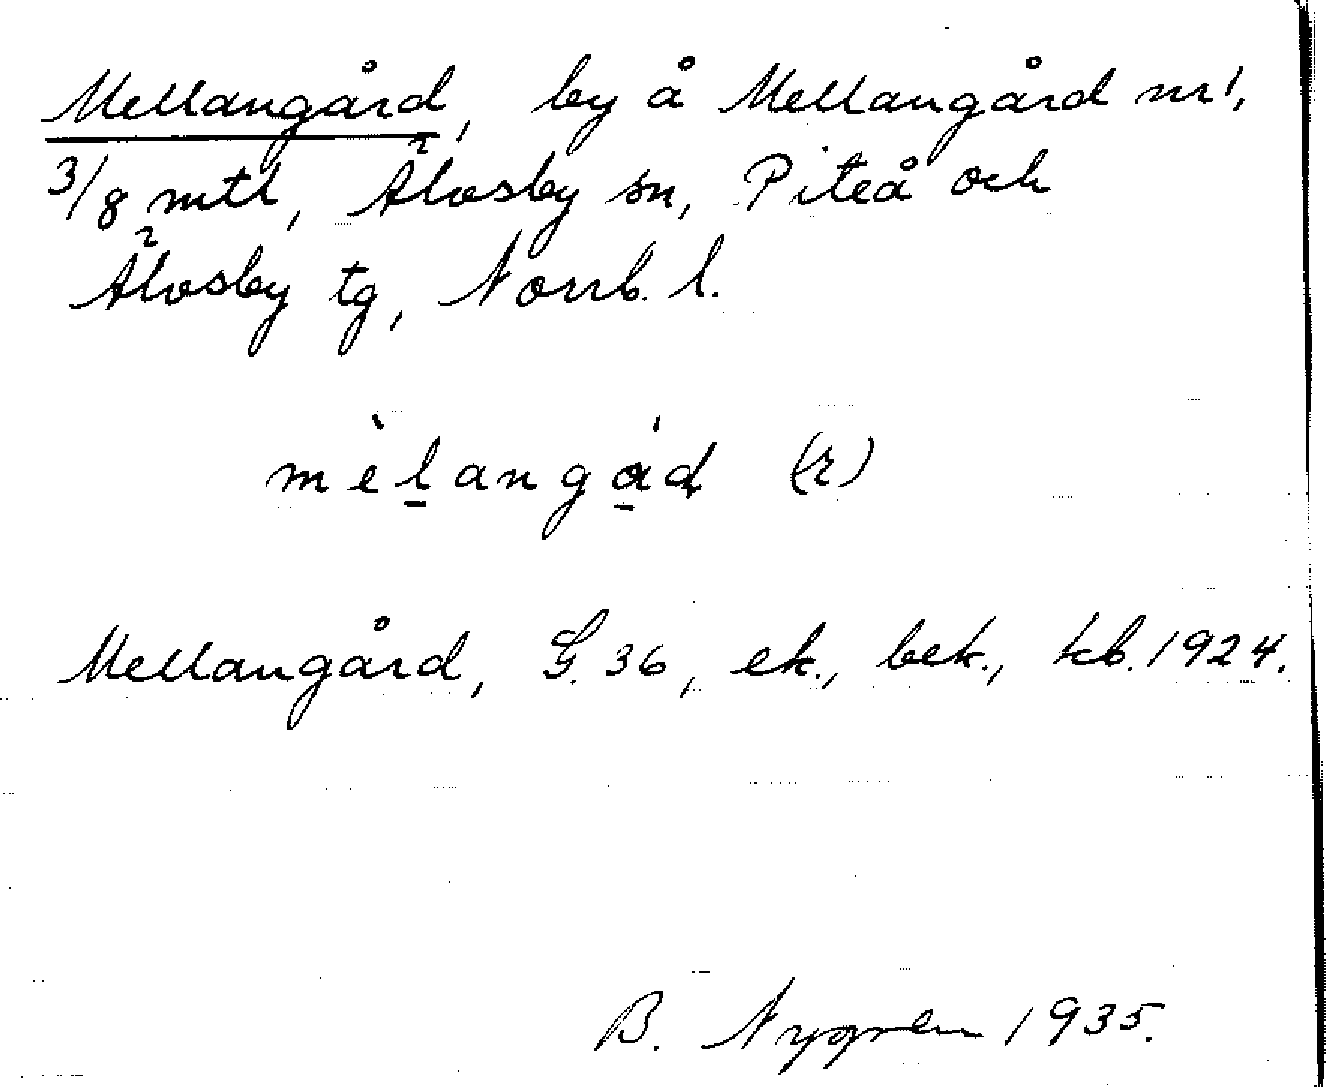 Mellangård, by å Mellangård nr 1,
3/8 mtl, Älvsby sn, Piteå och
Älvsby tg, Norrb. l.
mèlangád (r)
Mellangård, G. 36, ek., bek., kb. 1924.
B. Nygren 1935.